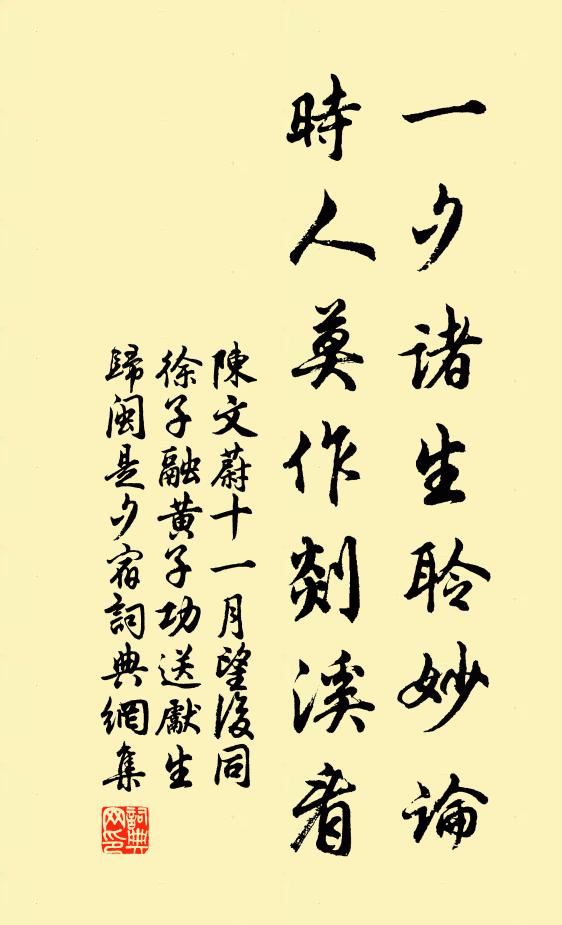 一夕諸生聆妙論
時人莫作剡溪看
陳文蔚十一月望後同
徐子融黄子功送獻生
歸閩是夕宿詞典網集
詞典
网印